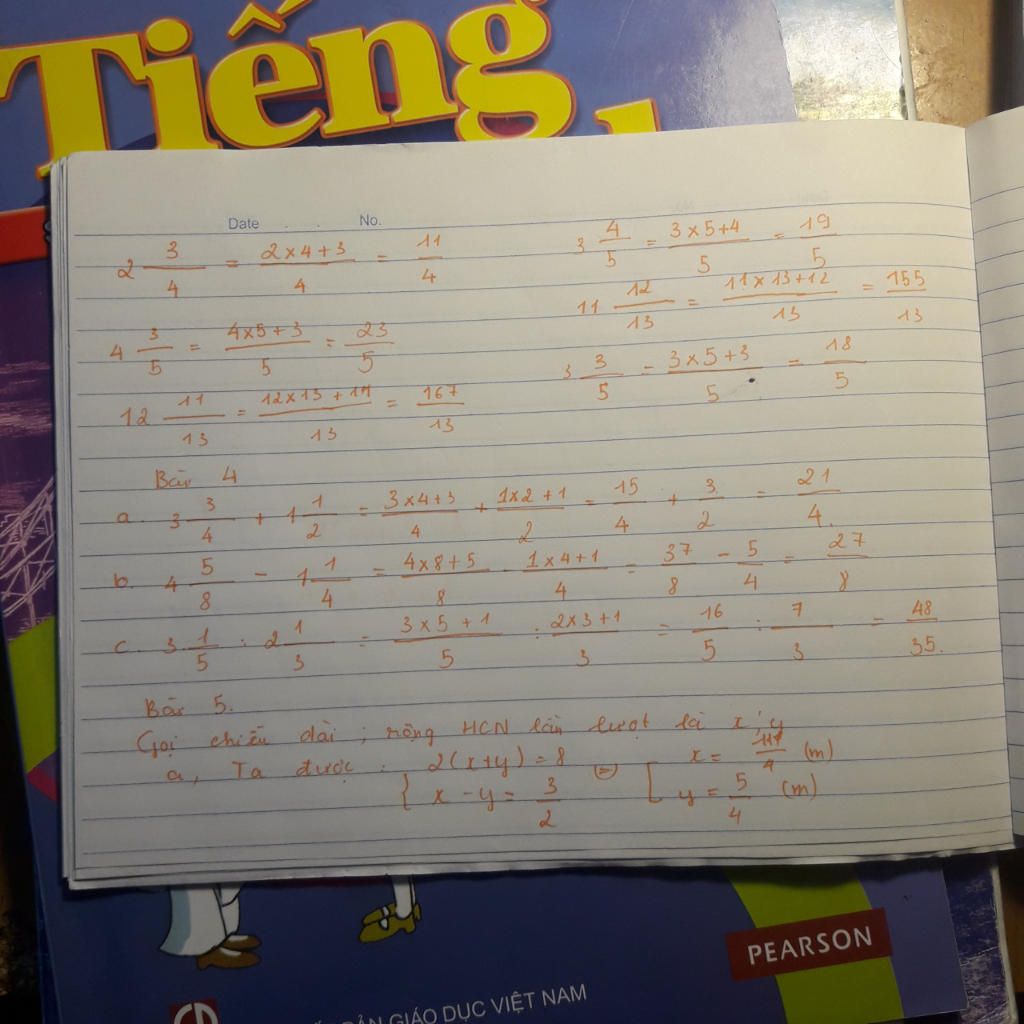 Tiếng
Date . . No.
2 3/4 = (2×4+3)/4 = 11/4
3 4/5 = (3×5+4)/5 = 19/5
11 12/13 = (11×13+12)/13 = 155/13
4 3/5 = (4×5+3)/5 = 23/5
3 3/5 = (3×5+3)/5 = 18/5
12 11/13 = (12×13+11)/13 = 167/13
Bài 4
a. 3 3/4 + 1 1/2 = (3×4+3)/4 + (1×2+1)/2 = 15/4 + 3/2 = 21/4.
b. 4 5/8 - 1 1/4 = (4×8+5)/8 - (1×4+1)/4 = 37/8 - 5/4 = 27/8
c. 3 1/5 : 2 1/3 = (3×5+1)/5 : (2×3+1)/3 = 16/5 : 7/3 = 48/35.
Bài 5.
Gọi chiều dài ; rộng HCN lần lượt là x, y
a, Ta được : { 2(x+y) = 8 (=) [ x = 11/4 (m)
x - y = 3/2 y = 5/4 (m)
PEARSON
BẢN GIÁO DỤC VIỆT NAM